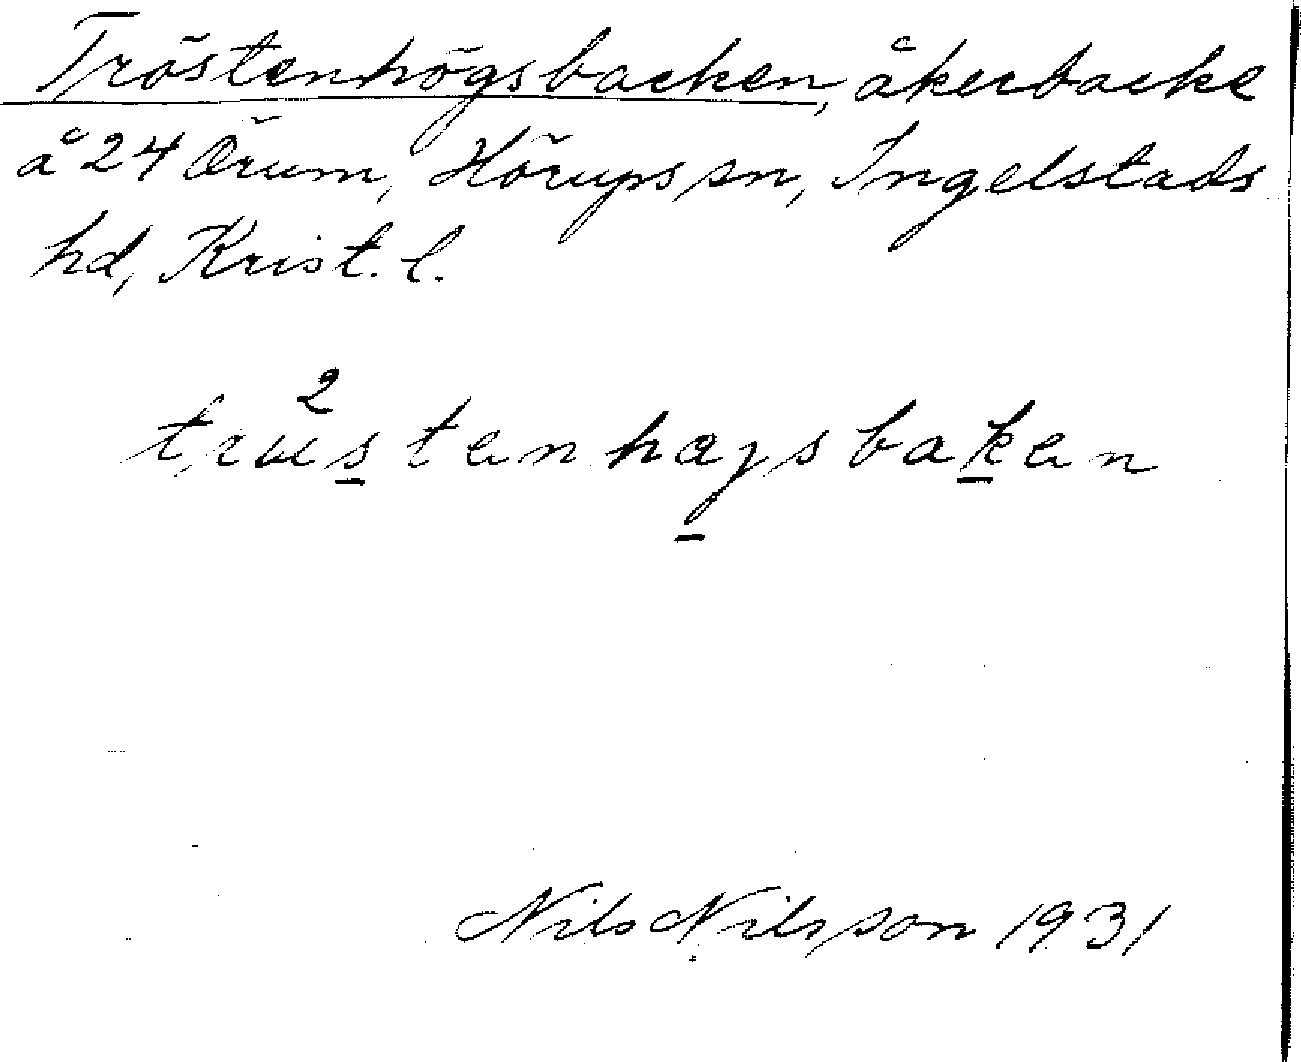 Tröstenhögsbacken, åkerbacke
å 24 Örum, Hörups sn, Ingelstads
hd, Krist. l.
2
trustenhøysbaken
Nils Nilsson 1931